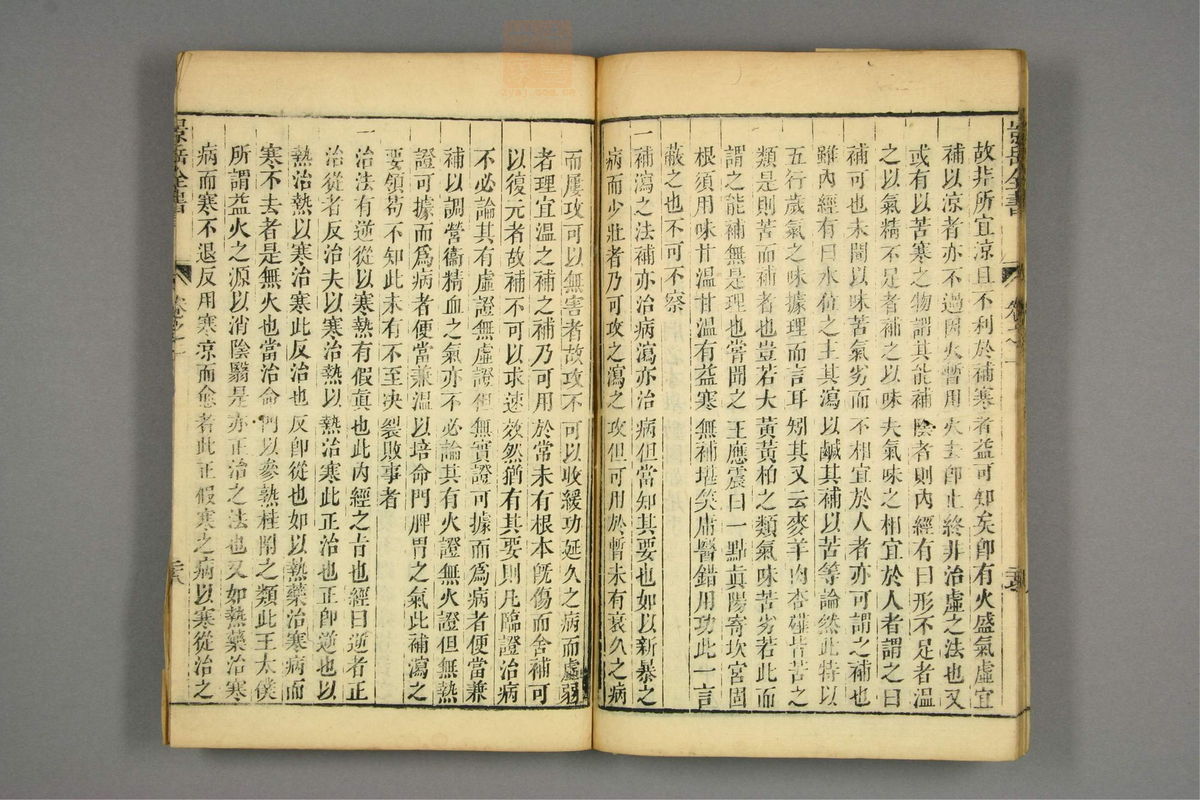 景岳全書
卷之一
故非所宜凉且不利於補寒者益可知矣卽有火盛氣虛宜
補以凉者亦不過因火暫用火去卽止終非治虛之法也又
或有以苦寒之物謂其能補陰者則內經有曰形不足者溫
之以氣精不足者補之以味夫氣味之相宜於人者謂之曰
補可也未聞以味苦氣劣而不相宜於人者亦可謂之補也
雖內經有曰水位之主其瀉以鹹其補以苦等論然此特以
五行歲氣之味據理而言耳矧其又云麥羊肉杏薤皆苦之
類是則苦而補者也豈若大黃黃柏之類氣味苦劣若此而
謂之能補無是理也嘗聞之王應震曰一點眞陽寄坎宮固
根須用味甘溫甘溫有益寒無補堪笑庸醫錯用功此一言
蔽之也不可不察
一補瀉之法補亦治病瀉亦治病但當知其要也如以新暴之
病而少壯者乃可攻之瀉之攻但可用於暫未有衰久之病
而屢攻可以無害者故攻不可以收緩功延久之病而虛弱
者理宜溫之補之補乃可用於常未有根本旣傷而舍補可
以復元者故補不可以求速效然猶有其要則凡臨證治病
不必論其有虛證無虛證但無實證可據而爲病者便當兼
補以調營衞精血之氣亦不必論其有火證無火證但無熱
證可據而爲病者便當兼溫以培命門脾胃之氣此補瀉之
要領茍不知此未有不至决裂敗事者
一治法有逆從以寒熱有假眞也此內經之旨也經曰逆者正
治從者反治夫以寒治熱以熱治寒此正治也正卽逆也以
熱治熱以寒治寒此反治也反卽從也如以熱藥治寒病而
寒不去者是無火也當治命門以參熟桂附之類此王太僕
所謂益火之源以消陰翳是亦正治之法也又如熱藥治寒
病而寒不退反用寒凉而愈者此正假寒之病以寒從治之
景岳全書
卷之一